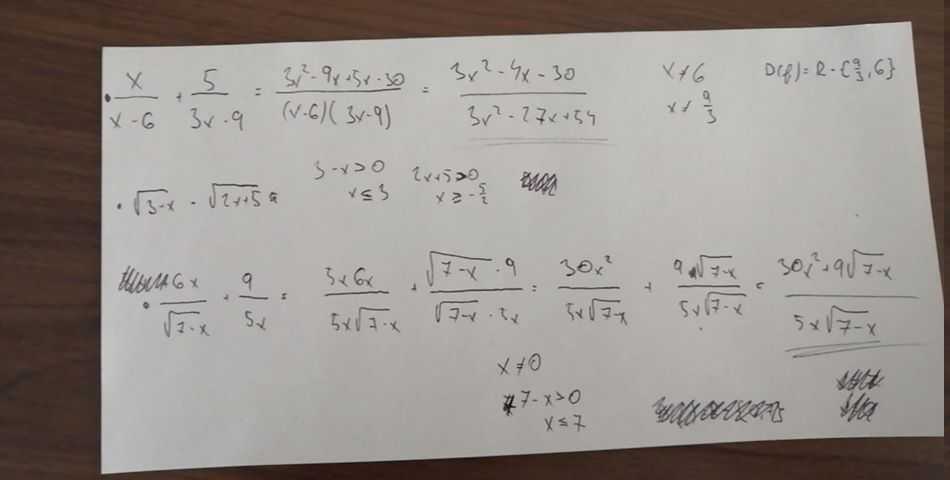 • x/(x-6) + 5/(3x-9) = (3x²-9x+5x-30)/((x-6)(3x-9)) = (3x²-4x-30)/(3x²-27x+54) x≠6 D(f)=R-{9/3,6}
x≠9/3
• √(3-x) - √(2x+5) = 3-x>0 2x+5>0
x≤3 x≥-5/2
• 6x/√(7-x) + 9/5x = 5x6x/5x√(7-x) + √(7-x)·9/√(7-x)·5x = 30x²/5x√(7-x) + 9·√(7-x)/5x√(7-x) = (30x²+9√(7-x))/5x√(7-x)
x≠0
7-x>0
x≤7